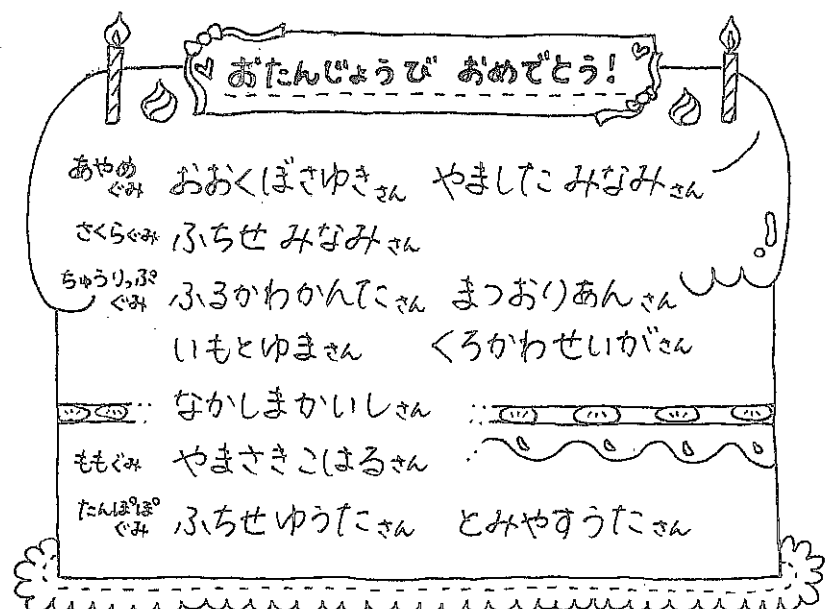 おたんじょうび おめでとう!
あやめぐみ おおくぼさゆきさん やました みなみさん
さくらぐみ ふちせ みなみさん
ちゅうりっぷぐみ ふるかわかんたさん まつおりあんさん
いもとゆまさん くろかわせいがさん
なかしまかいしさん
ももぐみ やまさきこはるさん
たんぽぽぐみ ふちせゆうたさん とみやすうたさん